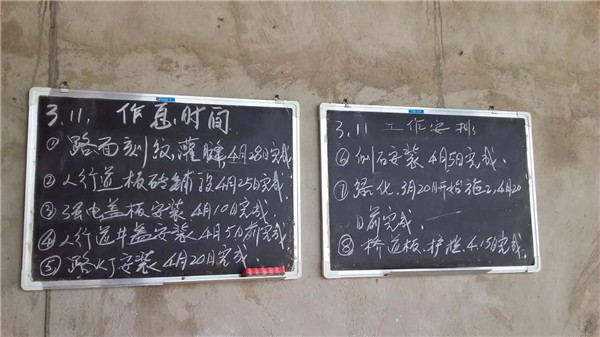 3.11, 作息时间
① 路面刻纹,灌缝4月28日完成
② 人行道板砖铺设4月25日完成
③ 强电盖板安装4月10日完成
④ 人行道井盖安装4月5日前完成
⑤ 路灯安装4月20日完成.
3.11 工作安排
⑥ 侧石安装4月5日完成.
⑦ 绿化,3月20日开始施工,4月20
日前完成.
⑧ 桥道板,护 4.15日完成.